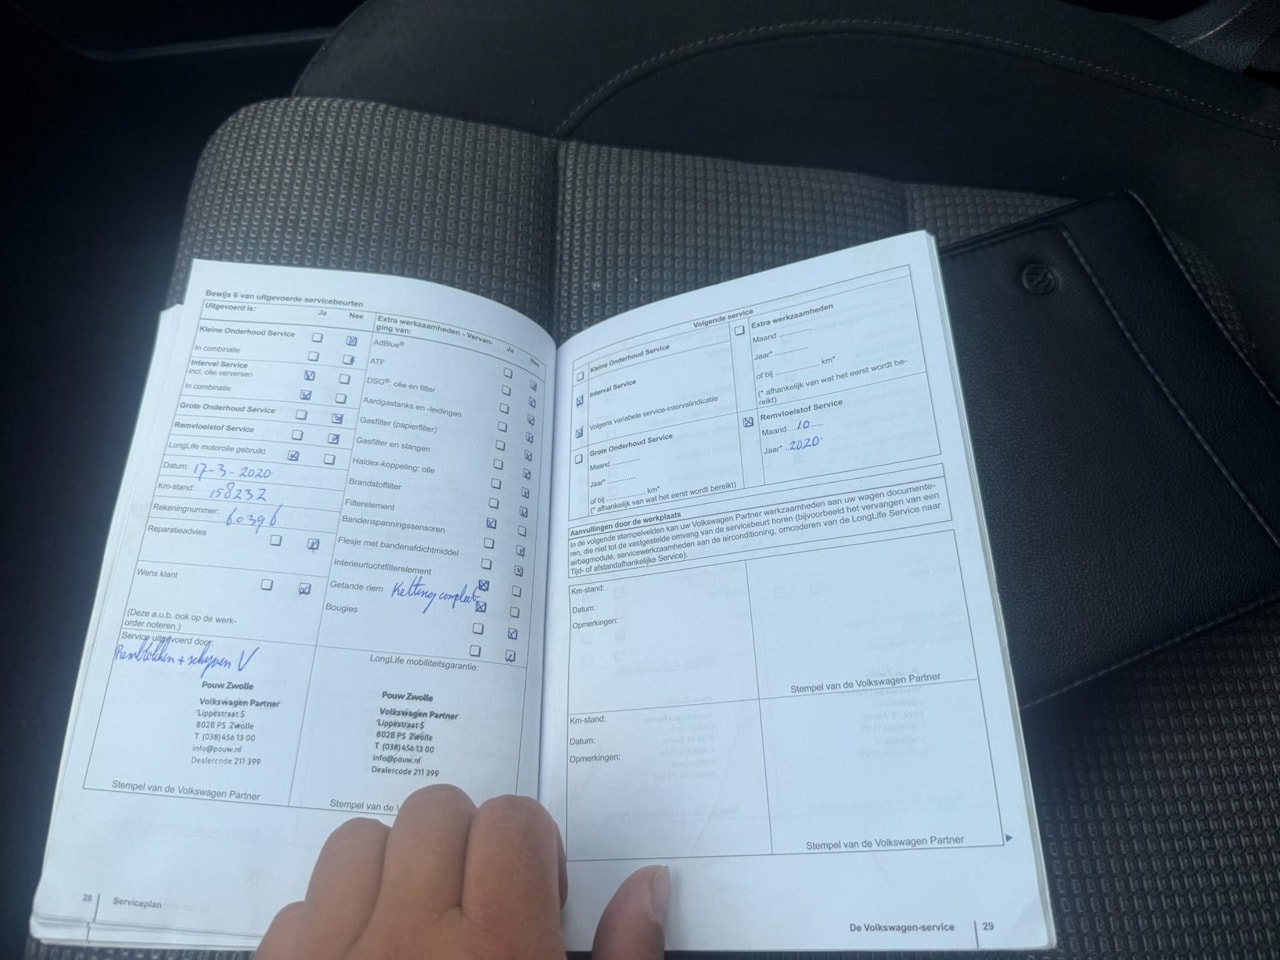 Bewijs 6 van uitgevoerde servicebeurten
Uitgevoerd is: Ja Nee
Kleine Onderhoud Service
In combinatie
Interval Service
incl. olie verversen
In combinatie
Grote Onderhoud Service
Remvloeistof Service
LongLife motorolie gebruikt
Datum: 17-3-2020
Km-stand: 158232
Rekeningnummer: 60396
Reparatieadvies
Wens klant
(Deze a.u.b. ook op de werk-
order noteren.)
Service uitgevoerd door:
Remblokken + schijven V
Pouw Zwolle
Volkswagen Partner
Lippestraat 5
8028 PS Zwolle
T (038) 456 13 00
info@pouw.nl
Dealercode 211 399
Stempel van de Volkswagen Partner
Extra werkzaamheden - Vervan-
ging van: Ja Nee
AdBlue®
ATF
DSG®- olie en filter
Aardgastanks en -leidingen
Gasfilter (papierfilter)
Gasfilter en slangen
Haldex-koppeling: olie
Brandstoffilter
Filterelement
Bandenspanningssensoren
Flesje met bandenafdichtmiddel
Interieurluchtfilterelement
Getande riem Ketting compleet
Bougies
LongLife mobiliteitsgarantie:
Pouw Zwolle
Volkswagen Partner
Lippestraat 5
8028 PS Zwolle
T (038) 456 13 00
info@pouw.nl
Dealercode 211 399
Stempel van de V
28 Serviceplan
Volgende service
Kleine Onderhoud Service
Interval Service
Volgens variabele service-intervalindicatie
Grote Onderhoud Service
Maand
Jaar*
of bij km*
(* afhankelijk van wat het eerst wordt bereikt)
Extra werkzaamheden
Maand
Jaar*
of bij km*
(* afhankelijk van wat het eerst wordt be-
reikt)
Remvloeistof Service
Maand 10
Jaar* 2020
Aanvullingen door de werkplaats
In de volgende stempelvelden kan uw Volkswagen Partner werkzaamheden aan uw wagen documente-
ren, die niet tot de vastgestelde omvang van de servicebeurt horen (bijvoorbeeld het vervangen van een
airbagmodule, servicewerkzaamheden aan de airconditioning, omcoderen van de LongLife Service naar
Tijd- of afstandafhankelijke Service).
Km-stand:
Datum:
Opmerkingen:
Stempel van de Volkswagen Partner
Km-stand:
Datum:
Opmerkingen:
Stempel van de Volkswagen Partner
De Volkswagen-service 29